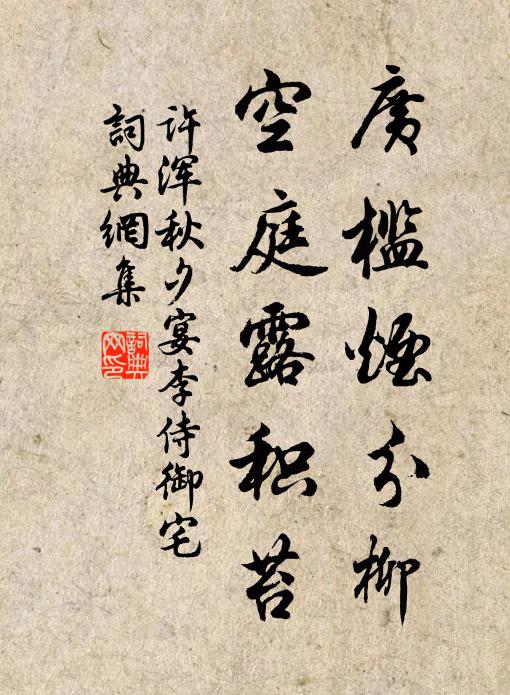 廣檻煙分柳
空庭露积苔
许浑秋夕宴李侍御宅
詞典網集
詞典
网印